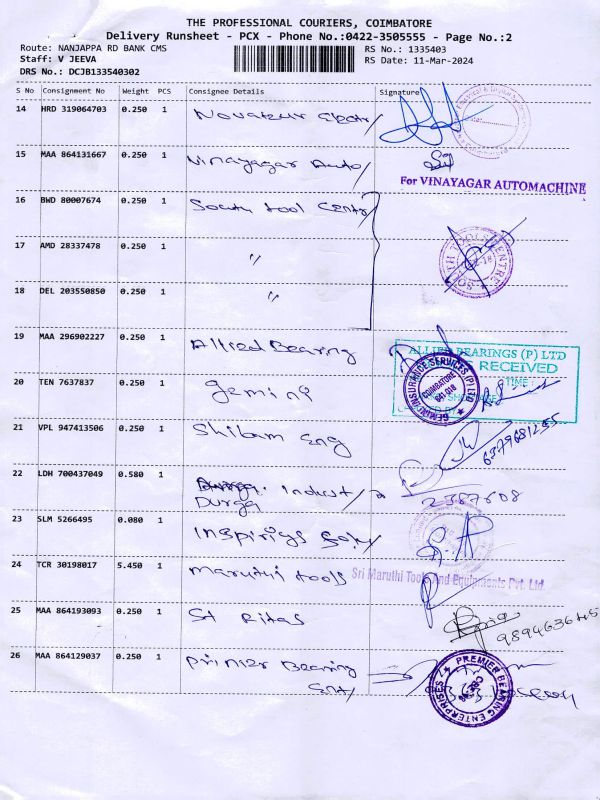 THE PROFESSIONAL COURIERS, COIMBATORE
Delivery Runsheet - PCX - Phone No.:0422-3505555 - Page No.:2
Route: NANJAPPA RD BANK CMS
RS No.: 1335403
Staff: V JEEVA
RS Date: 11-Mar-2024
DRS No.: DCJB133540302
S No Consignment No Weight PCS Consignee Details Signature
14 HRD 319064703 0.250 1
15 MAA 864131667 0.250 1 Vinayagar Auto/
For VINAYAGAR AUTOMACHINE
16 BWD 80007674 0.250 1 tool
17 AMD 28337478 0.250 1 "
18 DEL 203550850 0.250 1 "
19 MAA 296902227 0.250 1 Allied Bearing
ALLIED BEARINGS (P) LTD
RECEIVED
TIME:
20 TEN 7637837 0.250 1 gemini
GEMINI INSURANCE SERVICES (P) LTD
COIMBATORE
641 018
21 VPL 947413506 0.250 1 Shibam Eng
6379681255
22 LDH 700437049 0.580 1 Indust/
Durga
2387608
23 SLM 5266495 0.080 1
24 TCR 30198017 5.450 1 maruthi tools
Sri Maruthi Tools and Equipments Pvt. Ltd.
25 MAA 864193093 0.250 1 St Ritas
26 MAA 864129037 0.250 1 primier Bearing
PREMIER BEARING ENTERPRISES